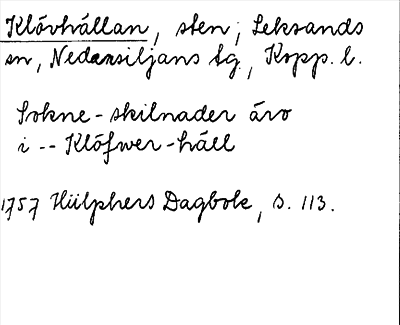 Klövhällan, sten, Leksands
sn, Nedansiljans tg, Kopp. l.
Sokne-skilnader äro
i -- Klöfwer-häll
1757 Hülphers Dagbok, s. 113.